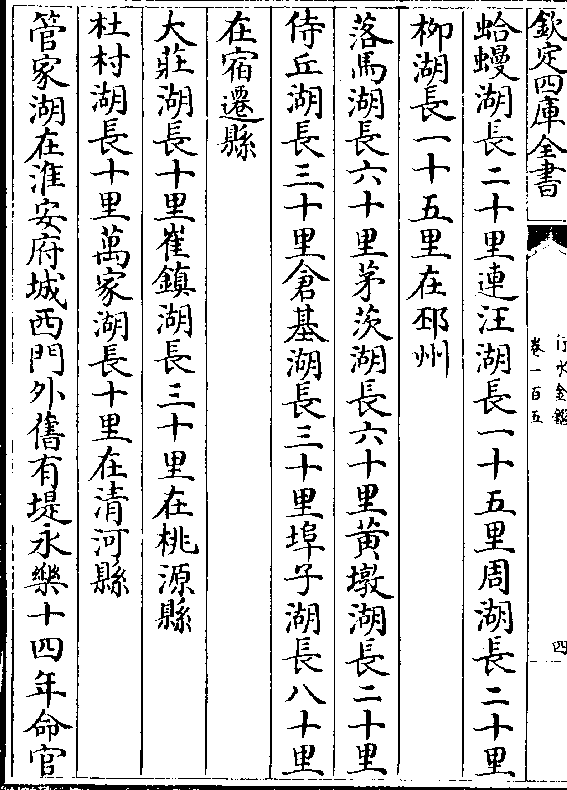 欽定四庫全書
行水金鑑
卷一百五
四
蛤蟃湖長二十里連汪湖長一十五里周湖長二十里
柳湖長一十五里在邳州
落馬湖長六十里茅茨湖長六十里黃墩湖長二十里
侍丘湖長三十里倉基湖長三十里埠子湖長八十里
在宿遷縣
大莊湖長十里崔鎮湖長三十里在桃源縣
杜村湖長十里萬家湖長十里在清河縣
管家湖在淮安府城西門外舊有堤永樂十四年命官